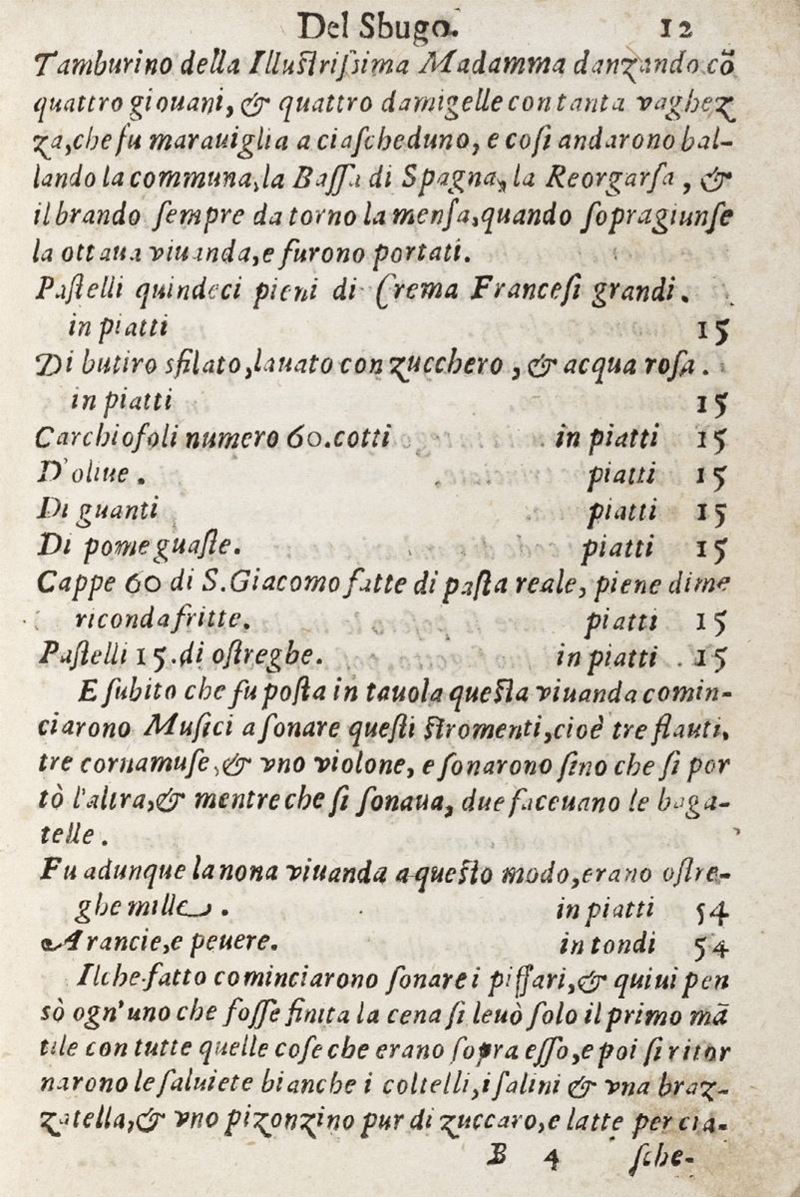 Del Sbugo. 12
Tamburino della Illustriſsima Madamma danzando cō
quattro giouani, & quattro damigelle con tanta vaghez
za, che fu marauiglia a ciaſcheduno, e coſi andarono bal-
lando la communa, la Baſſa di Spagna, la Reorgarſa, &
il brando ſempre da torno la menſa, quando ſopragiunſe
la ottaua viuanda, e furono portati.
Paſtelli quindeci pieni di Crema Franceſi grandi.
in piatti 15
Di butiro sfilato, lauato con zucchero, & acqua roſa.
in piatti 15
Carchiofoli numero 60. cotti in piatti 15
D'oliue. piatti 15
Di guanti piatti 15
Di pome guaſte. piatti 15
Cappe 60 di S. Giacomo fatte di paſta reale, piene di me
riconda fritte. piatti 15
Paſtelli 15. di oſtreghe. in piatti . 15
E ſubito che fu poſta in tauola queſta viuanda comin-
ciarono Muſici a ſonare queſti ſtromenti, cioè tre flauti,
tre cornamuſe, & vno violone, e ſonarono ſino che ſi por
tò l'altra, & mentre che ſi ſonaua, due faceuano le baga-
telle.
Fu adunque la nona viuanda a queſto modo, erano oſtre-
ghe mille. in piatti 54
Arancie, e peuere. in tondi 54
Il che fatto cominciarono ſonare i piffari, & quiui pen
sò ogn'uno che foſſe finita la cena ſi leuò ſolo il primo mā
tile con tutte quelle coſe che erano ſopra eſſo, e poi ſi ritor
narono le ſaluiete bianche i coltelli, i ſalini & vna braz-
zatella, & vno pizonzino pur di zuccaro, e latte per cia-
B 4 ſche-